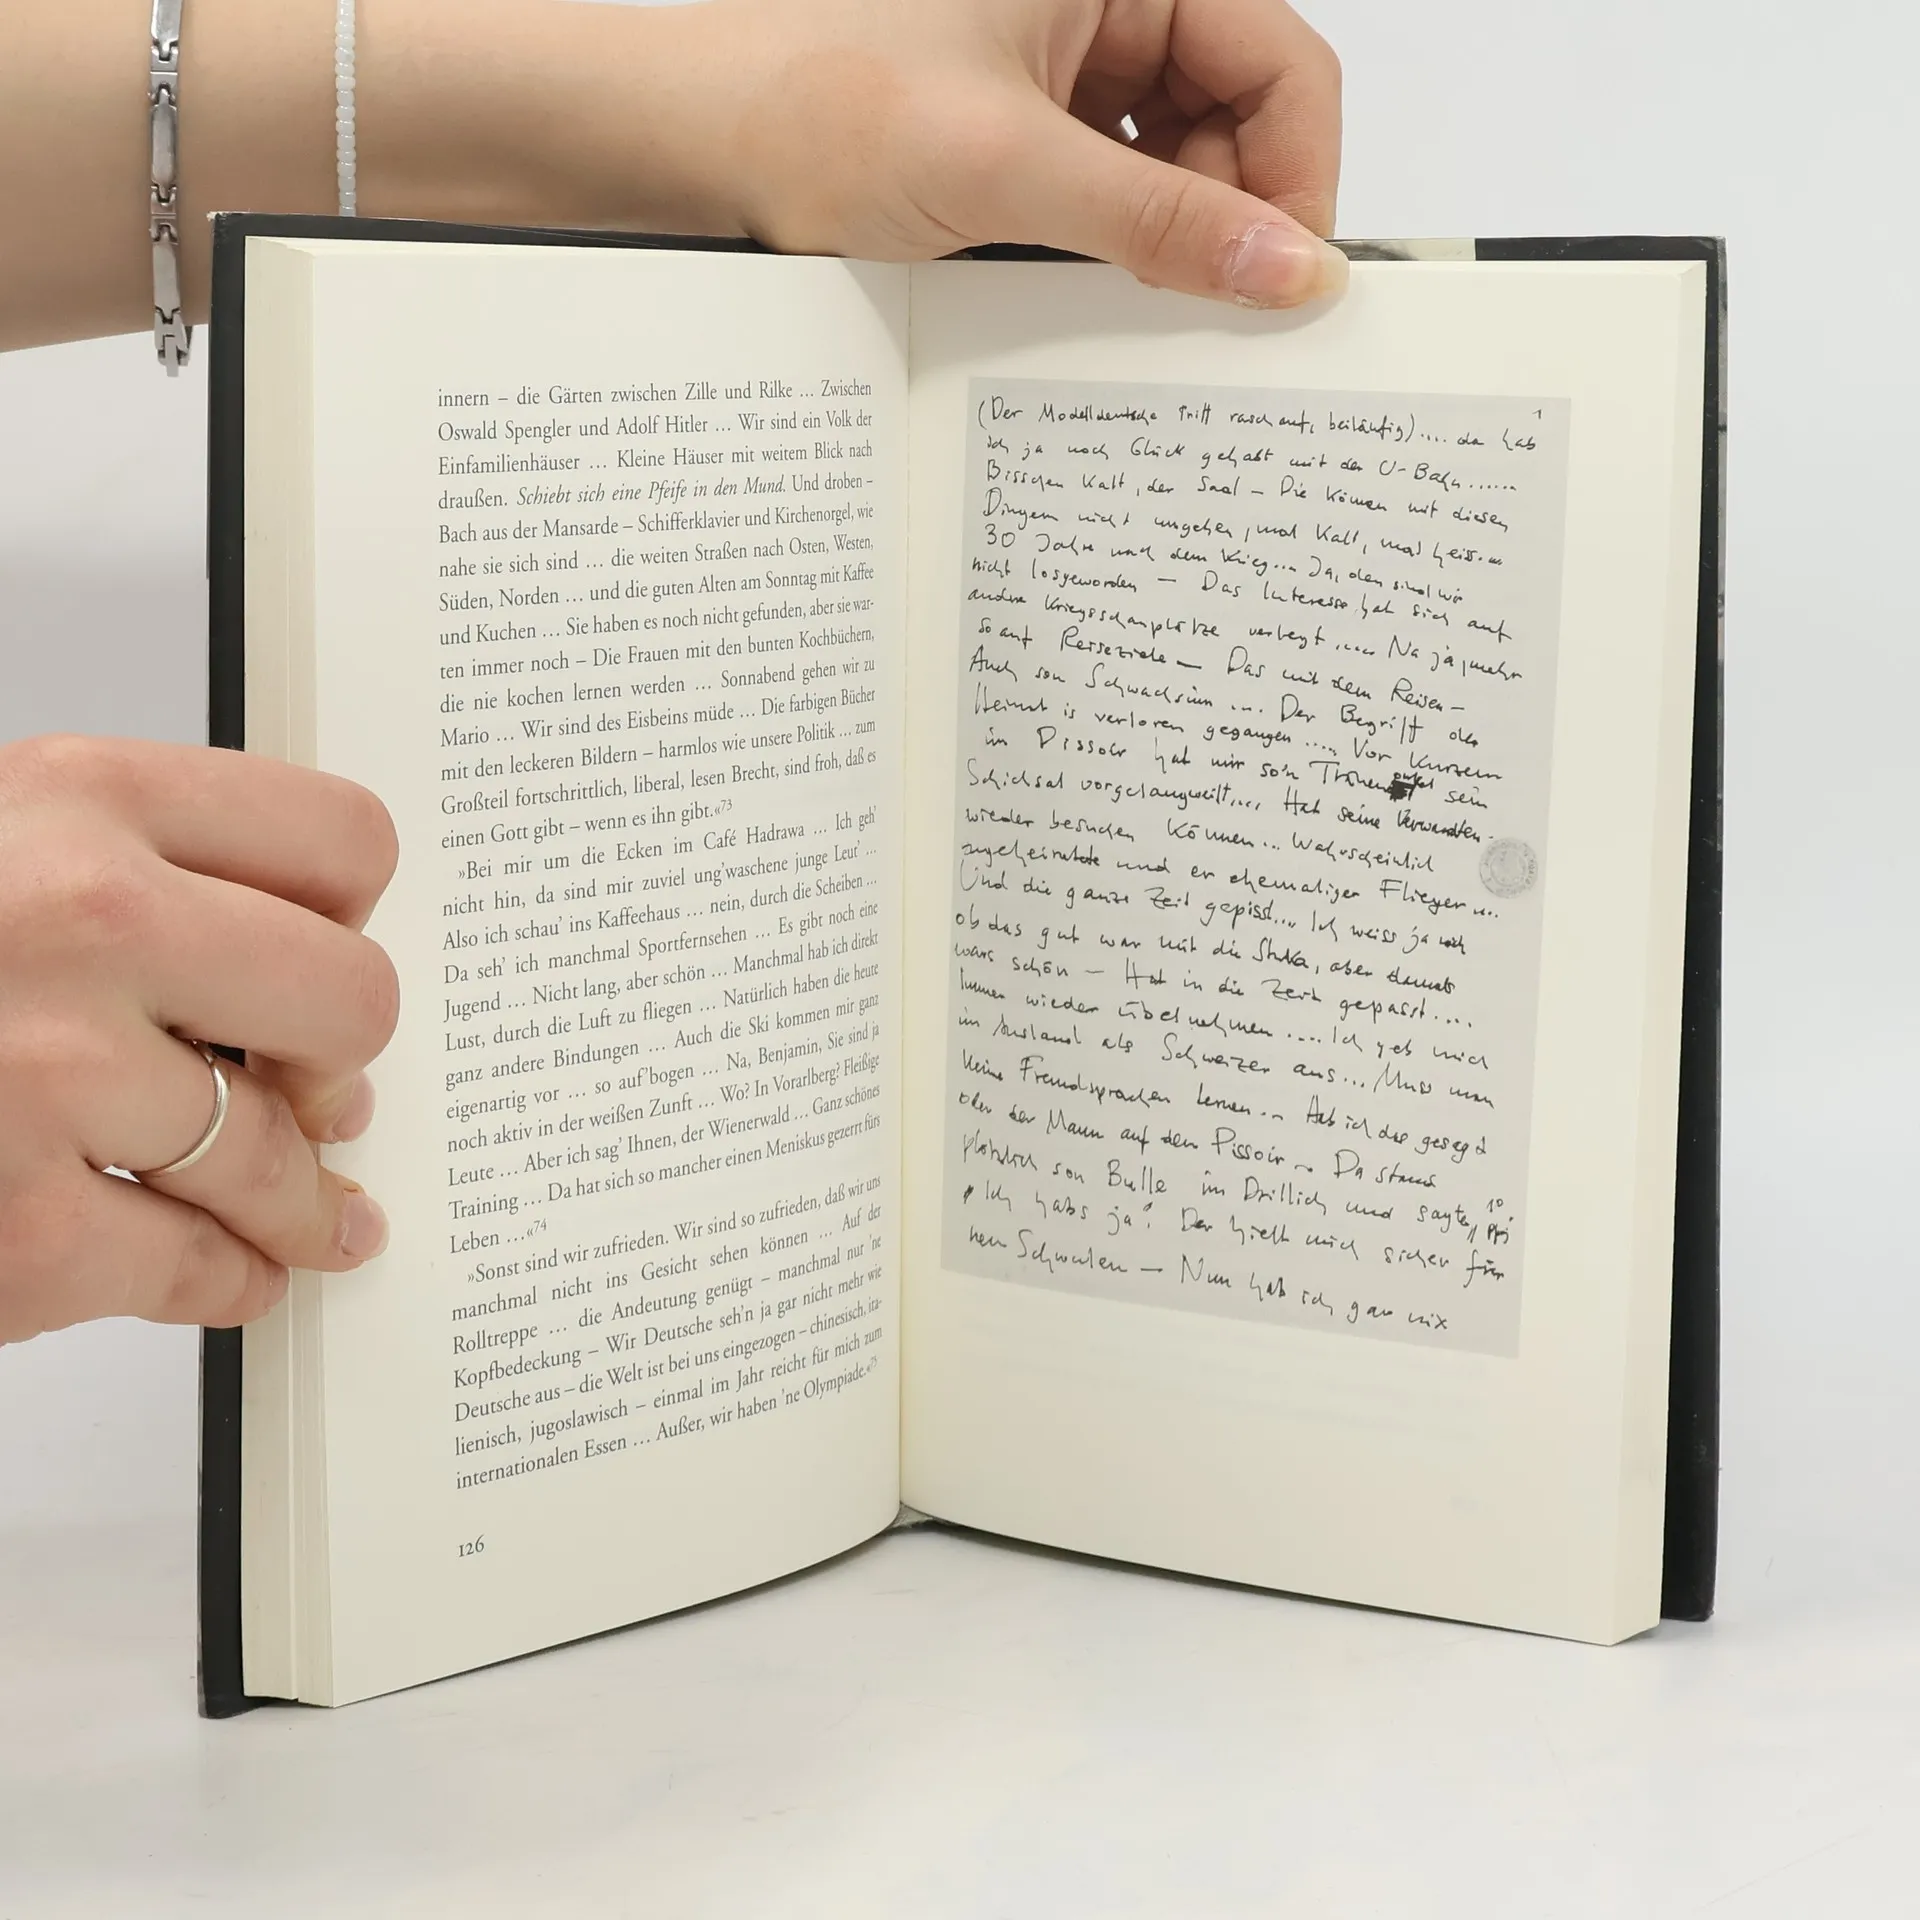 innern – die Gärten zwischen Zille und Rilke ... Zwischen
Oswald Spengler und Adolf Hitler ... Wir sind ein Volk der
Einfamilienhäuser ... Kleine Häuser mit weitem Blick nach
draußen. Schiebt sich eine Pfeife in den Mund. Und droben –
Bach aus der Mansarde – Schifferklavier und Kirchenorgel, wie
nahe sie sich sind ... die weiten Straßen nach Osten, Westen,
Süden, Norden ... und die guten Alten am Sonntag mit Kaffee
und Kuchen ... Sie haben es noch nicht gefunden, aber sie war-
ten immer noch – Die Frauen mit den bunten Kochbüchern,
die nie kochen lernen werden ... Sonnabend gehen wir zu
Mario ... Wir sind des Eisbeins müde ... Die farbigen Bücher
mit den leckeren Bildern – harmlos wie unsere Politik ... zum
Großteil fortschrittlich, liberal, lesen Brecht, sind froh, daß es
einen Gott gibt – wenn es ihn gibt.«73
»Bei mir um die Ecken im Café Hadrawa ... Ich geh'
nicht hin, da sind mir zuviel ung'waschene junge Leut' ...
Also ich schau' ins Kaffeehaus ... nein, durch die Scheiben ...
Da seh' ich manchmal Sportfernsehen ... Es gibt noch eine
Jugend ... Nicht lang, aber schön ... Manchmal hab ich direkt
Lust, durch die Luft zu fliegen ... Natürlich haben die heute
ganz andere Bindungen ... Auch die Ski kommen mir ganz
eigenartig vor ... so auf'bogen ... Na, Benjamin, Sie sind ja
noch aktiv in der weißen Zunft ... Wo? In Vorarlberg? Fleißige
Leute ... Aber ich sag' Ihnen, der Wienerwald ... Ganz schönes
Training ... Da hat sich so mancher einen Meniskus gezerrt fürs
Leben ...«74
»Sonst sind wir zufrieden. Wir sind so zufrieden, daß wir uns
manchmal nicht ins Gesicht sehen können ... Auf der
Rolltreppe ... die Andeutung genügt – manchmal nur 'ne
Kopfbedeckung – Wir Deutsche seh'n ja gar nicht mehr wie
Deutsche aus – die Welt ist bei uns eingezogen – chinesisch, ita-
lienisch, jugoslawisch – einmal im Jahr reicht für mich zum
internationalen Essen ... Außer, wir haben 'ne Olympiade.«75
126
1
(Der Modelldeutsche tritt rasch auf, beiläufig).... da hab
ich ja noch Glück gehabt mit der U-Bahn......
Bisschen Kalt, der Saal – Die Können mit diesen
Dingern nicht umgehen, mal Kalt, mal heiss...
30 Jahre nach dem Krieg... Ja, den sind wir
nicht losgeworden – Das Interesse hat sich auf
andre Kriegsschauplätze verlegt..... Na ja, mehr
so auf Reiseziele – Das mit dem Reisen –
Auch son Schwachsinn ... Der Begriff der
Heimat is verloren gegangen ..... Vor Kurzem
im Pissoir hat mir so'n Tränen sein
Schicksal vorgelangweilt.... Hat seine Verwandten
wieder besuchen Können... Wahrscheinlich
angeheiratete und er ehemaliger Flieger ...
Und die ganze Zeit gepisst.... Ich weiss ja nich
ob das gut war mit die Stuka, aber damals
wars schön – Hat in die Zeit gepasst....
Immer wieder übel nehmen .... Ich geb mich
im Ausland als Schweizer aus... Muss man
Keine Fremdsprachen lernen... Hab ich das gesagt
oder der Mann auf dem Pissoir – Da stand
plötzlich son Bulle im Drillich und sagte, 10
"Ich habs ja". Der hielt mich sicher für
nen Schwulen – Nun hab ich gar nix